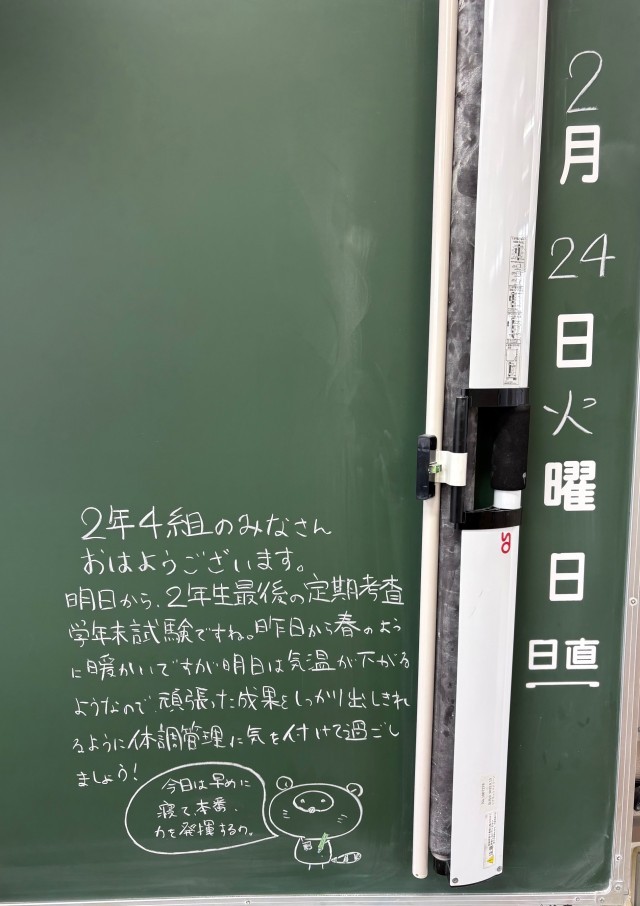 2年4組のみなさん
おはようございます。
明日から、2年生最後の定期考査
学年末試験ですね。昨日から春のよう
に暖かいですが明日は気温が下がる
ようなので、頑張った成果をしっかり出しきれ
るように体調管理に気を付けて過ごし
ましょう！
今日は早めに
寝て本番、
力を発揮するの。
2
月
24
日
火
曜
日
日直
OS